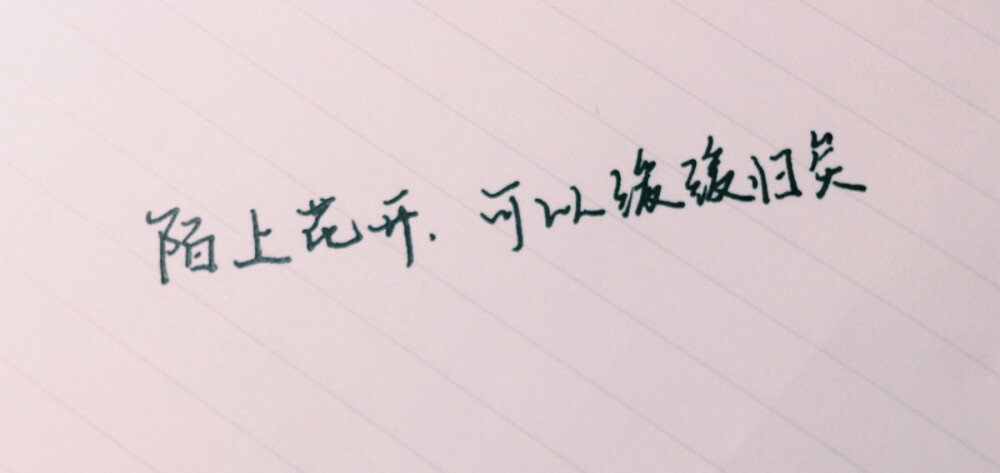 陌上花开.可以缓缓归矣